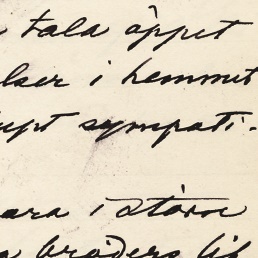 tala öppet
lser i hemmet
upt sympati.
ara i större
bröders lif